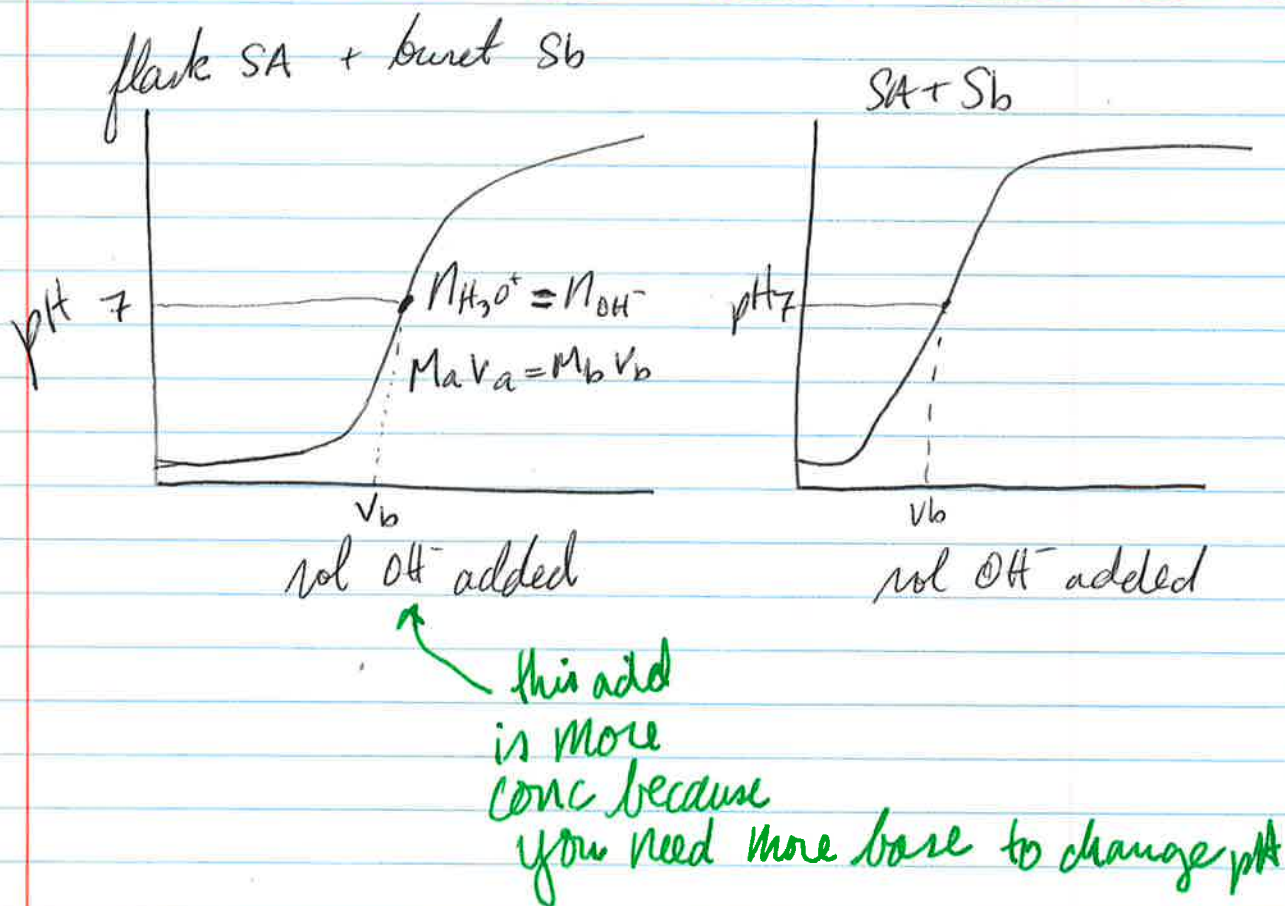 flask SA + buret Sb
SA + Sb
pH 7
n H₃O⁺ = n OH⁻
MaVa = MbVb
Vb
vol OH⁻ added
pH7
Vb
vol OH⁻ added
this acid
is more
conc because
you need more base to change pH